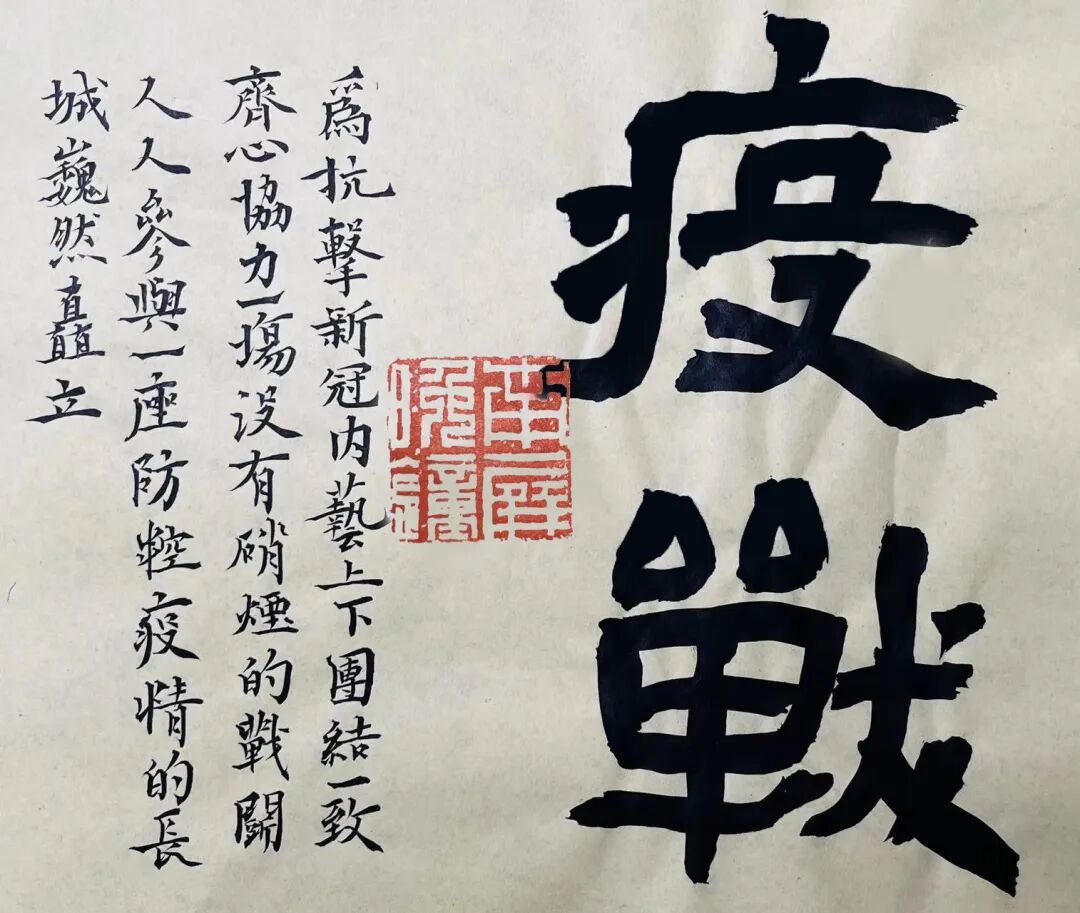 疫戰
爲抗擊新冠内藝上下團結一致
齊心協力一塲没有硝煙的戰鬭
人人參與一座防控疫情的長
城巍然矗立
南屏
晚鐘